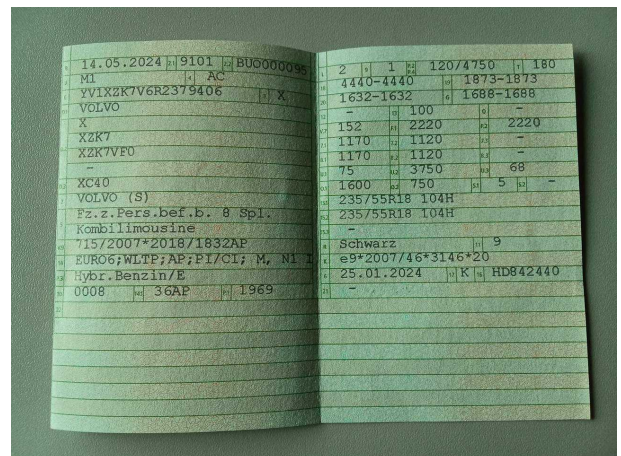 14.05.2024 9101 BUO000095
M1 AC
YV1XZK7V6R2379406 X
VOLVO
X
XZK7
XZK7VF0
-
XC40
VOLVO (S)
Fz.z.Pers.bef.b. 8 Spl.
Kombilimousine
715/2007*2018/1832AP
EURO6;WLTP;AP;PI/CI; M, N1 I
Hybr.Benzin/E
0008 36AP 1969
2 1 120/4750 180
4440-4440 1873-1873
1632-1632 1688-1688
- 100 -
152 2220 2220
1170 1120 -
1170 1120 -
75 3750 68
1600 750 5 -
235/55R18 104H
235/55R18 104H
-
Schwarz 9
e9*2007/46*3146*20
25.01.2024 K HD842440
-